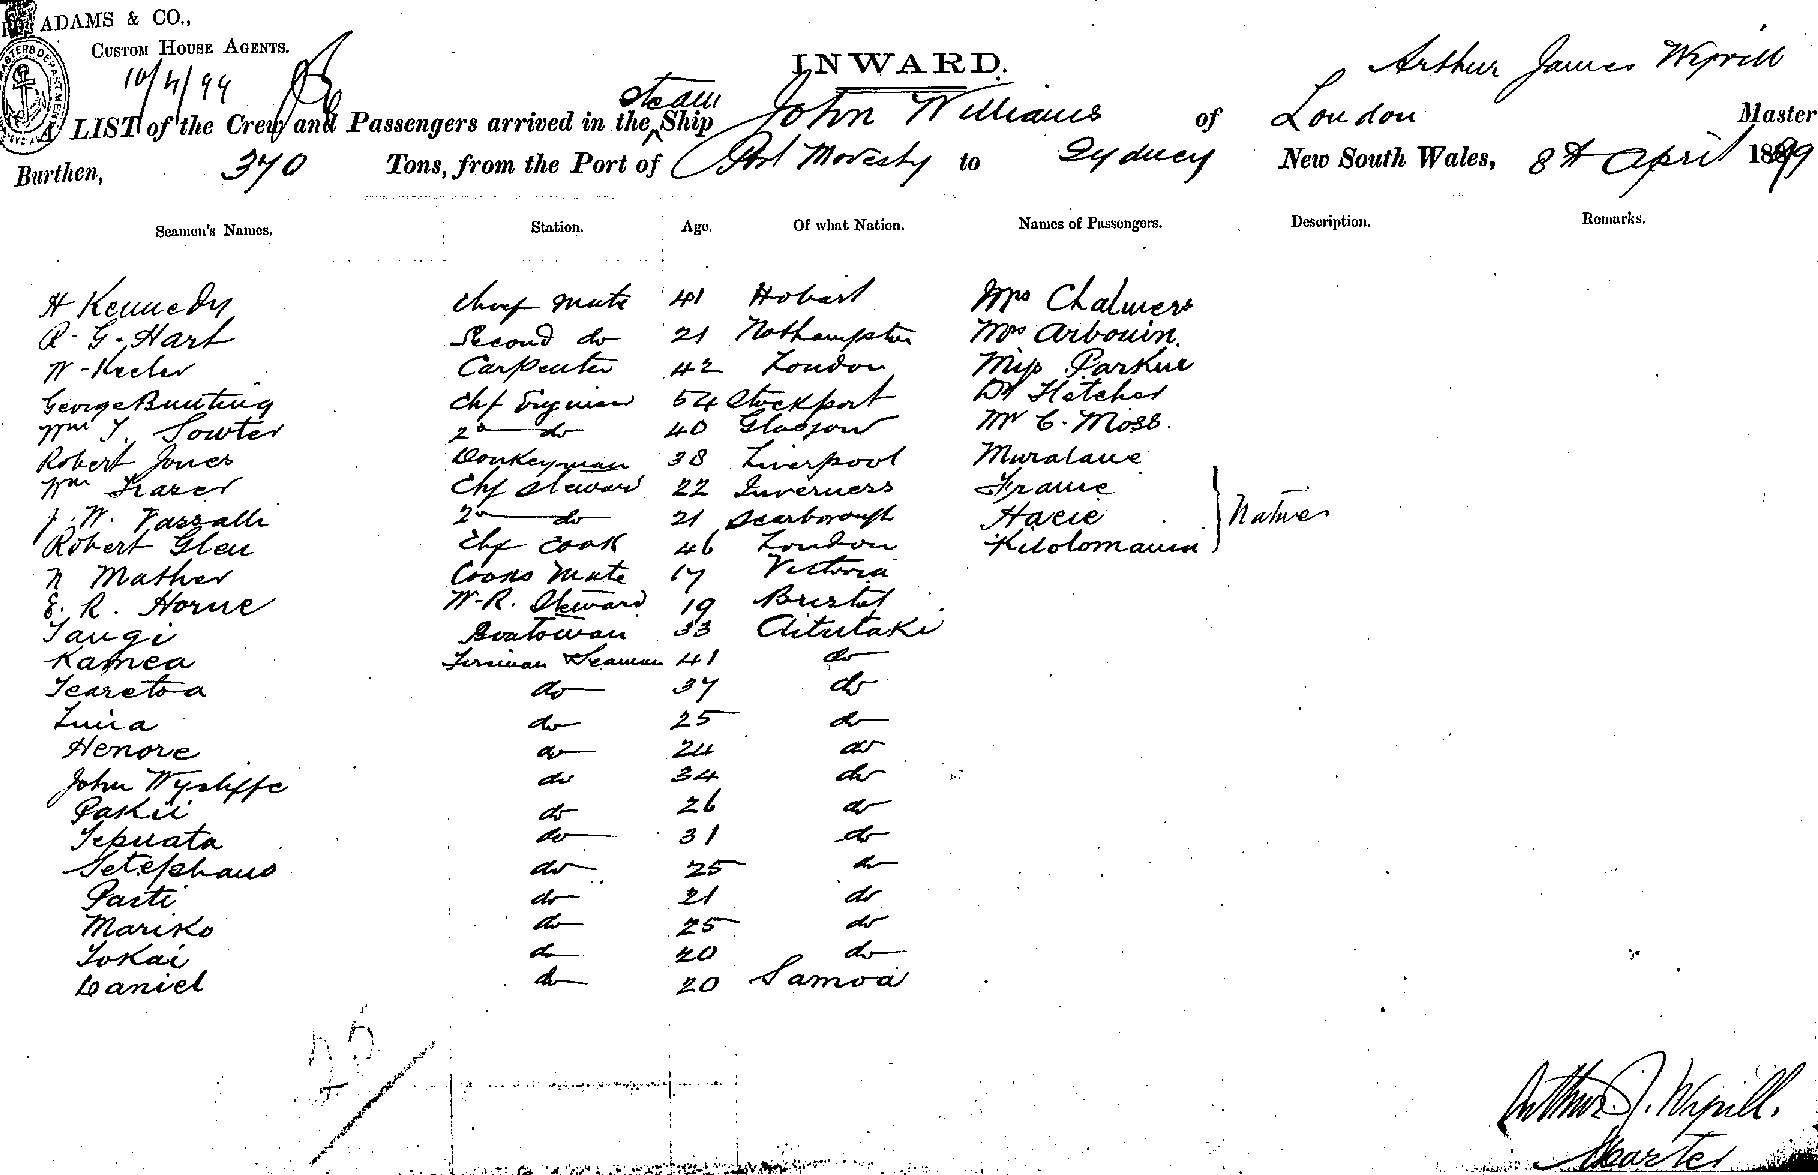 ADAMS & CO.,
CUSTOM HOUSE AGENTS.
10/4/99
INWARD.
Arthur James Wyrill
A LIST of the Crew and Passengers arrived in the steam Ship John Williams of London Master
Burthen, 370 Tons, from the Port of Port Moresby to Sydney New South Wales, 8th April 1899
Seamen's Names. Station. Age. Of what Nation. Names of Passengers. Description. Remarks.
H Kennedy Chief Mate 41 Hobart Mrs Chalmers
R. G. Hart Second do 21 Nothampton Mrs Arbouin.
W. Keeler Carpenter 42 London Miss Parkin
George Bunting Chf Engineer 54 Stockport Dr Fletcher
Wm T. Sowter 2nd do 40 Glasgow Mr C. Moss.
Robert Jones Donkeyman 38 Liverpool Muralane
Wm Frazer Chf Steward 22 Inverness Franie
J. W. Vassalli 2nd do 21 Scarborough Hacie Natives
Robert Glen Chf Cook 46 London
N Mather Cooks Mate 17 Victoria
E. R. Horne W.R. Steward 19 Bristol
Tangi Boatswain 33 Aitutaki
Kamea Fireman Seaman 41 do
Tearetoa do 37 do
Tuira do 25 do
Henore do 24 do
John Wycliffe do 34 do
Pakii do 26 do
Tepuata do 31 do
Setephano do 25 do
Paiti do 21 do
Mariko do 25 do
Tokai do 20 do
Daniel do 20 Samoa
25
Arthur J. Wyrill.
Master